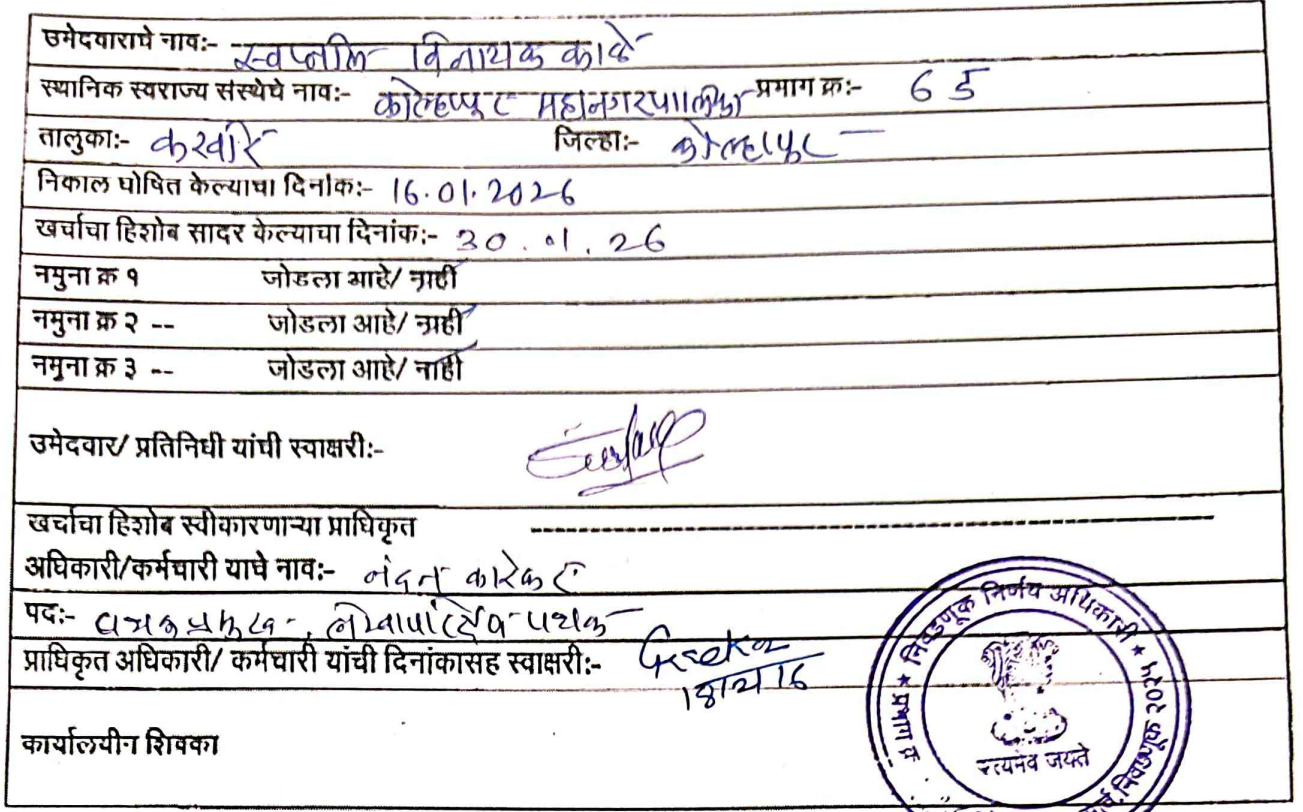 उमेदवाराचे नाव:- स्वप्नील विनायक काळे
स्थानिक स्वराज्य संस्थेचे नाव:- कोल्हापूर महानगरपालिका प्रभाग क्र:- 6 ड
तालुका:- करवीर जिल्हा:- कोल्हापूर
निकाल घोषित केल्याचा दिनांक:- 16.01.2026
खर्चाचा हिशोब सादर केल्याचा दिनांक:- 30.01.26
नमुना क्र १ जोडला आहे/ नाही
नमुना क्र २ -- जोडला आहे/ नाही
नमुना क्र ३ -- जोडला आहे/ नाही
उमेदवार/ प्रतिनिधी यांची स्वाक्षरी:-
खर्चाचा हिशोब स्वीकारणाऱ्या प्राधिकृत
अधिकारी/कर्मचारी याचे नाव:- नंदन कारेकर
पद:- पथक प्रमुख,
प्राधिकृत अधिकारी/ कर्मचारी यांची दिनांकासह स्वाक्षरी:-
कार्यालयीन शिक्का
निवडणूक निर्णय अधिकारी ★
सत्यमेव जयते